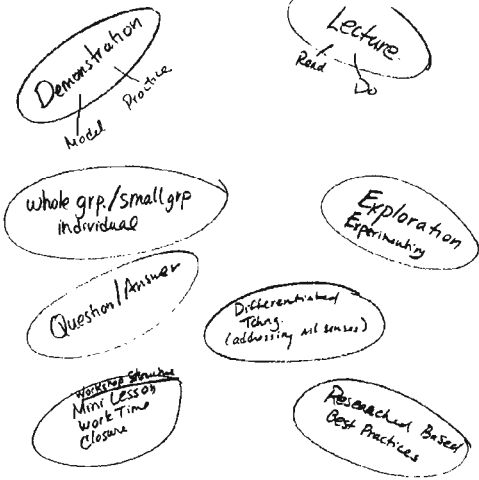 Demonstration
Model
Practice
Lecture
Read
Do
whole grp./small grp
individual
Exploration
Experimenting
Question/Answer
Differentiated
Tchng.
(addressing all senses)
Workshop Structure
Mini Lesson
Work Time
Closure
Researched Based
Best Practices